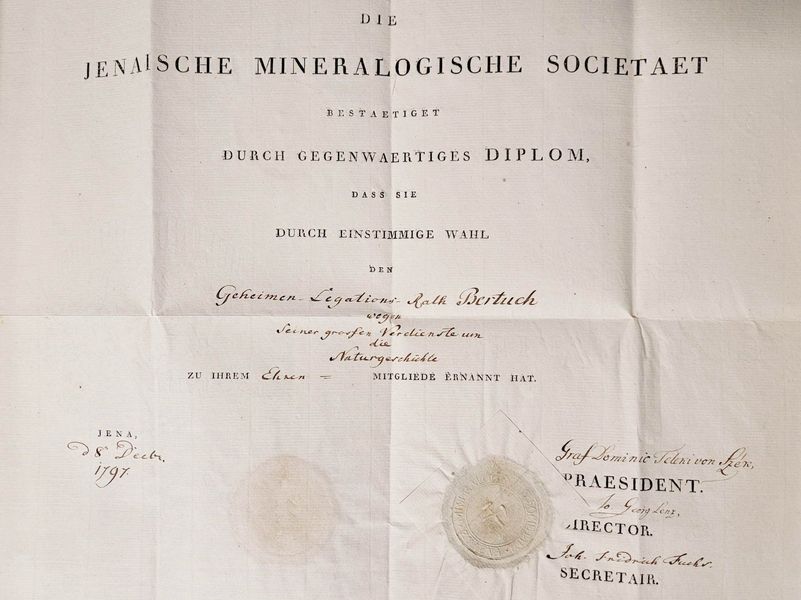 DIE
JENAISCHE MINERALOGISCHE SOCIETAET
BESTAETIGET
DURCH GEGENWAERTIGES DIPLOM,
DASS SIE
DURCH EINSTIMMIGE WAHL
DEN
Geheimen-Legations-Rath Bertuch
wegen
seiner grossen Verdienste um
die
Naturgeschichte
ZU IHREM Ehren = MITGLIEDE ERNANNT HAT.
JENA,
d 8 Decbr.
1797.
Graf Dominic Teleki von Szék,
PRAESIDENT.
Jo. Georg Lenz,
DIRECTOR.
Joh. Friedrich Fuchs.
SECRETAIR.